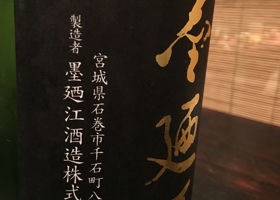 墨廼江
宮城県石巻市千石町八
製造者 墨廼江酒造株式